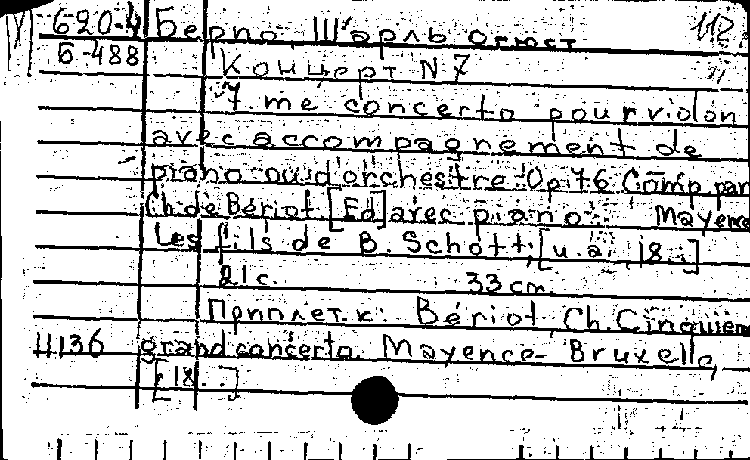 Б20-4 Берио, Шарль Огюст 112
Б-488 Концерт N 7
7 me concerto pour violon
avec accompagnement de
piano ou d'orchestre. Op. 76 Comp. par
Ch. de Bériot. [Ed] avec piano. Mayence
Les fils de B. Schott, [u. a., 18..]
21 c. 33 cm.
Приплет. к: Bériot, Ch. Cinquiem
11136 grand concerto. Mayence-Bruxelle,
[18..]